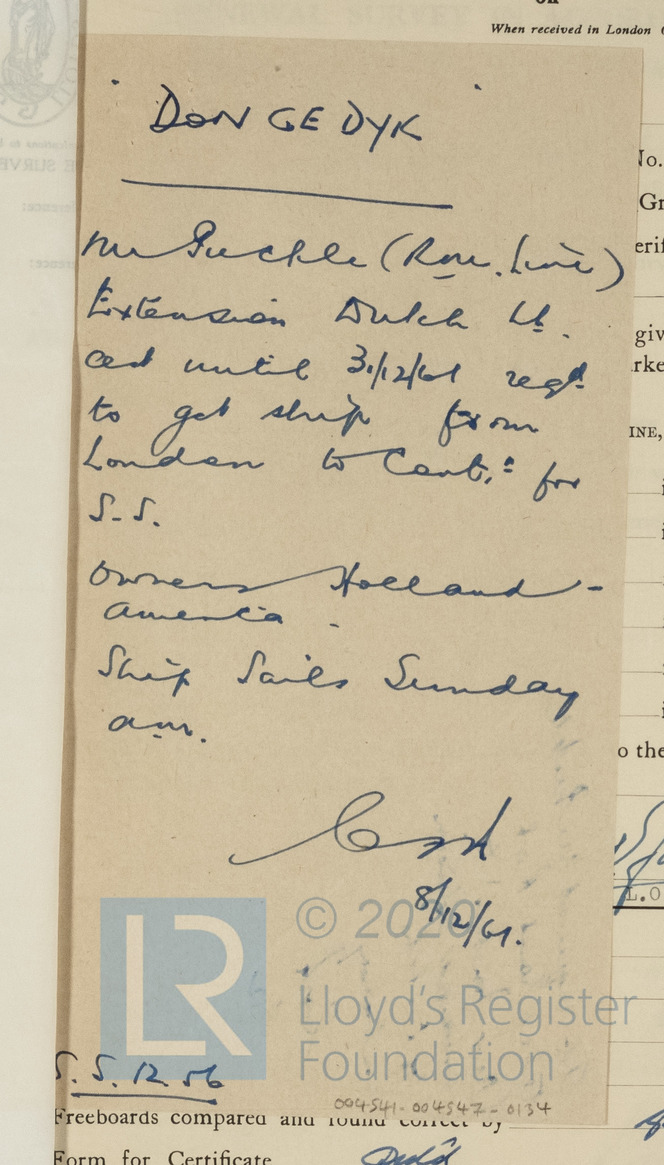 on
When received in London
"DONGEDYK"
Mr Puckle (Roy. Line)
Extension Dutch LL.
cert until 31/12/61 reqd.
to get ship from
London to Cont. for
S.S.
Owners Holland -
America.
Ship Sails Sunday
am.
8/12/61.
No.
Gr
erif
giv
rke
INE,
o the
L.O
© 2020
LR
Lloyd's Register
Foundation
S.S. 12.56
004541-004547-0134
Freeboards compared and found correct by
Form for Certificate